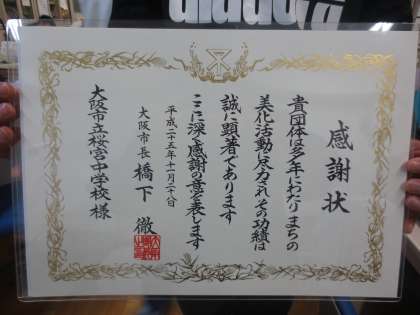 感謝状
貴団体は多年にわたりまちの
美化活動に尽力されその功績は
誠に顕著であります
ここに深く感謝の意を表します
平成二十五年十一月二十八日
大阪市長 橋下 徹
大阪市立桜宮中学校様